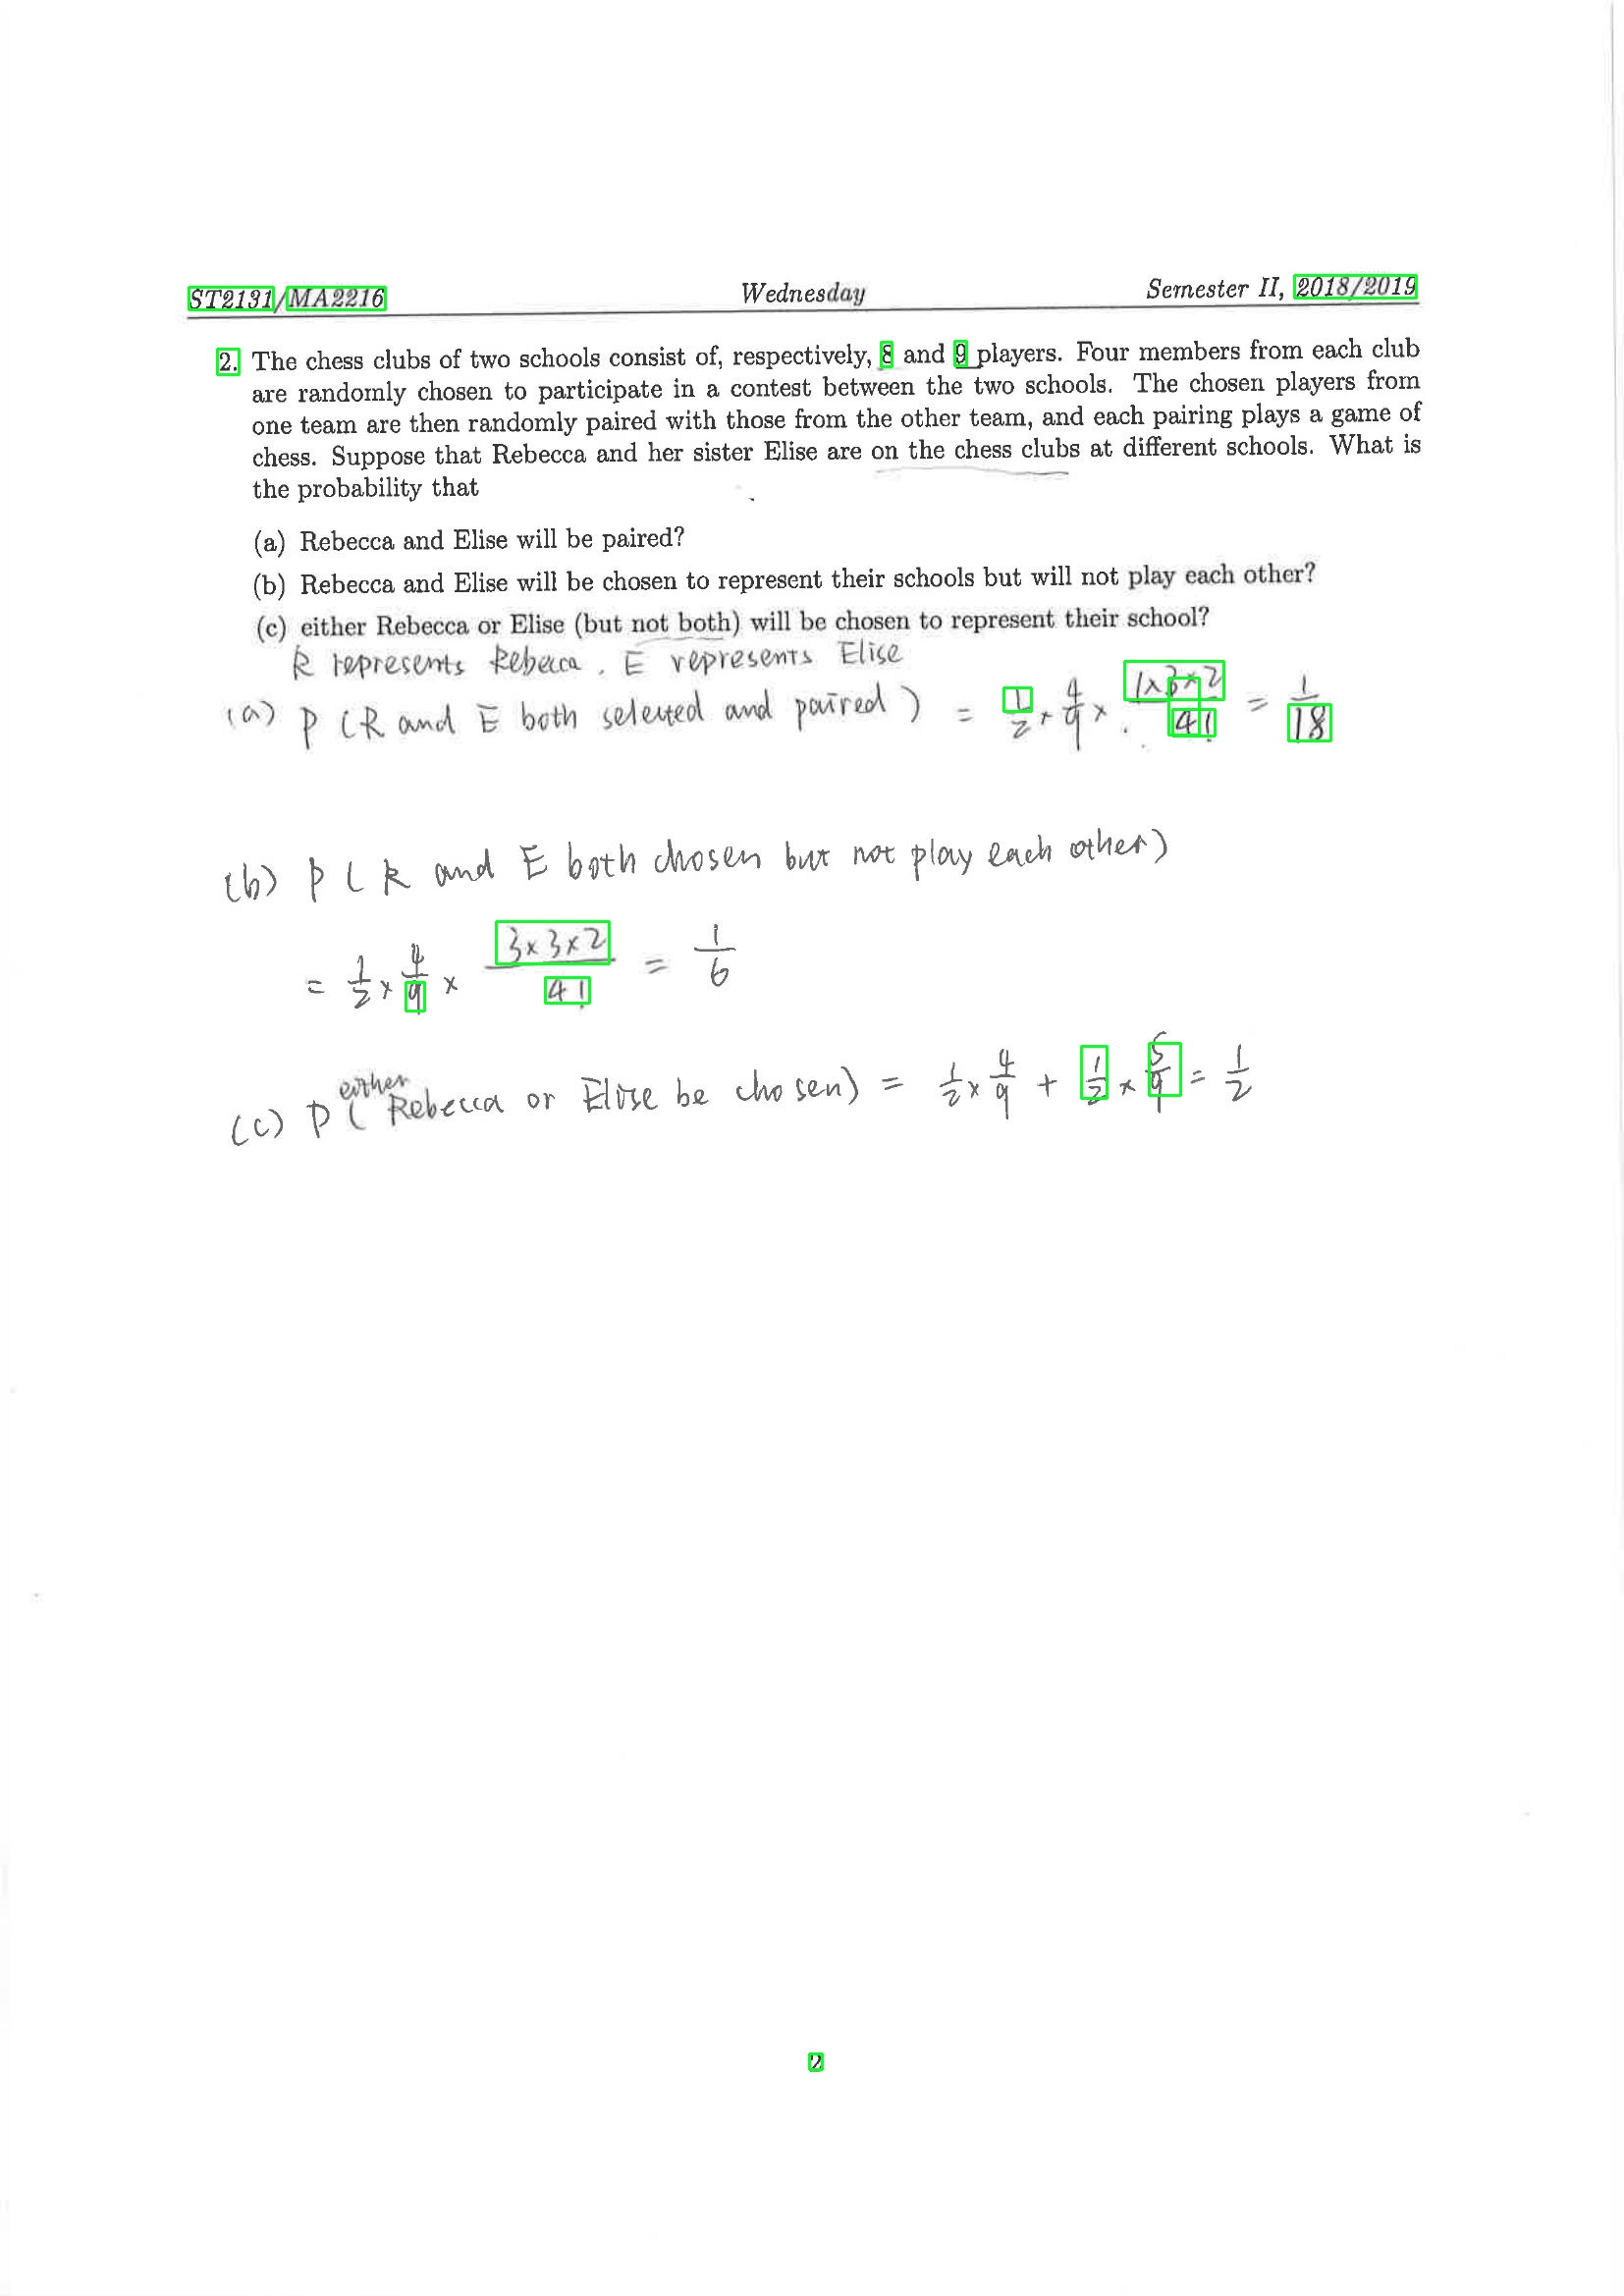 ST2131/MA2216 Wednesday Semester II, 2018/2019
2. The chess clubs of two schools consist of, respectively, 8 and 9 players. Four members from each club
are randomly chosen to participate in a contest between the two schools. The chosen players from
one team are then randomly paired with those from the other team, and each pairing plays a game of
chess. Suppose that Rebecca and her sister Elise are on the chess clubs at different schools. What is
the probability that
(a) Rebecca and Elise will be paired?
(b) Rebecca and Elise will be chosen to represent their schools but will not play each other?
(c) either Rebecca or Elise (but not both) will be chosen to represent their school?
R represents Rebecca. E represents Elise
(a) P (R and E both selected and paired) = 1/2 × 4/9 × 1×3×2/4! = 1/18
(b) P (R and E both chosen but not play each other)
= 1/2 × 4/9 × 3×3×2/4! = 1/6
(c) P (either Rebecca or Elise be chosen) = 1/2 × 4/9 + 1/2 × 5/9 = 1/2
2